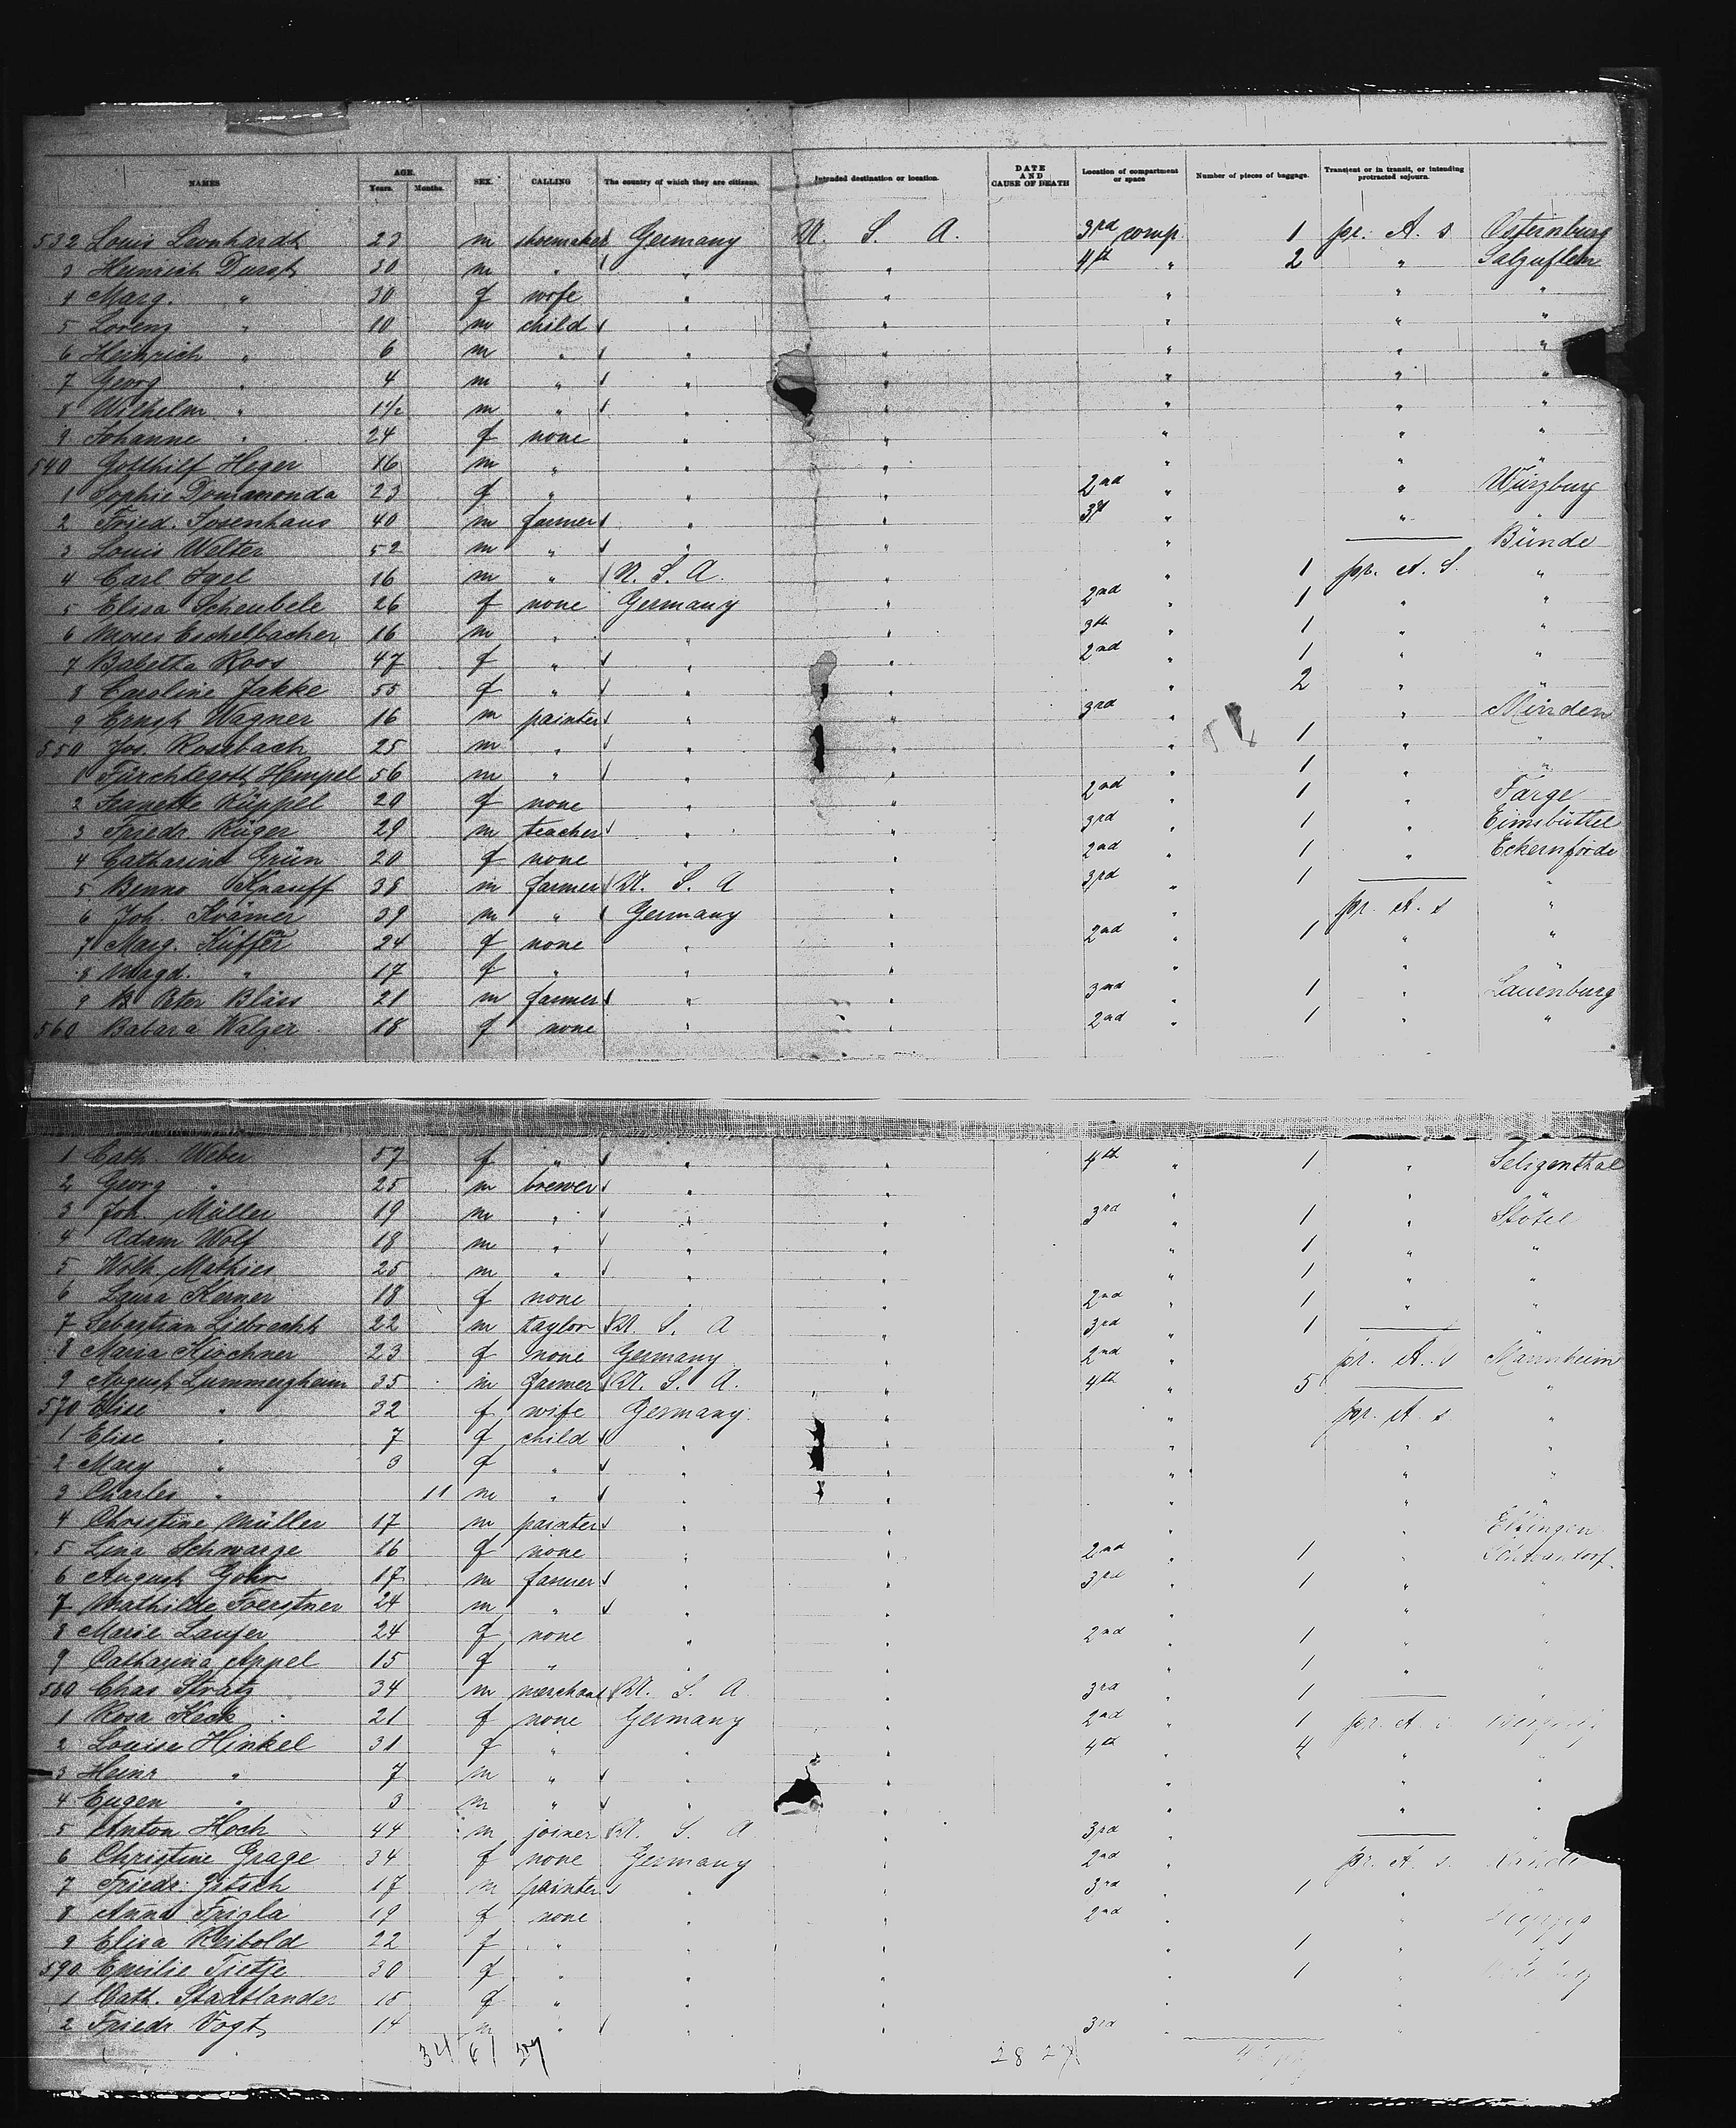 NAMES AGE. Years. Months. SEX. CALLING The country of which they are citizens. Intended destination or location. DATE AND CAUSE OF DEATH Location of compartment or space Number of pieces of baggage. Transient or in transit, or intending protracted sojourn.
532 Louis Leonhardt 23 m shoemaker Germany U. S. A. 3rd comp. 1 pr. A. s Osternburg
3 Heinrich Durst 30 m " " " 4th " 2 " Salzuflen
4 Marg. " 30 f wife " " " " "
5 Lorenz " 10 m child " " " " "
6 Heinrich " 6 m " " " " " "
7 Georg " 4 m " " " " " "
8 Wilhelm " 1½ m " " " " " "
9 Johanne " 24 f none " " " " "
540 Gotthilf Heger 16 m " " " " " "
1 Sophie 23 f " " " 2nd " " Würzburg
2 Fried. Josenhans 40 m farmer " " 3d " " "
3 Louis Welter 52 m " " " " — Bünde
4 Carl Igel 16 m " U. S. A. " " 1 pr. A. S. "
5 Elisa Scheubele 26 f none Germany " 2nd " 1 " "
6 Moses Eschelbacher 16 m " " " 3th " 1 " "
7 Babetta Roos 47 f " " " 2nd " 1 " "
8 Caroline Jakke 55 f " " " " " 2 " "
9 Ernst Wagner 16 m painter " " 3rd " " Minden
550 Jos. Rossbach 25 m " " " " " 1 " "
1 Fürchtegott Hempel 56 m " " " " " 1 " "
2 Jeanette Rüppel 29 f none " " 2nd " 1 " Farge
3 Friedr. Rüger 29 m teacher " " 3rd " 1 " Eimsbüttel
4 Catharina Grün 20 f none " " 2nd " 1 " Eckernförde
5 Benno Knauff 35 m farmer U. S. A " 3rd " 1 — "
6 Joh. Krämer 39 m " Germany " " " pr. A. s "
7 Marg. Küffer 24 f none " " 2nd " 1 " "
8 Magd. " 17 f " " " " " " "
9 Peter Bläss 21 m farmer " " 3nd " 1 " Lauenburg
560 Babara Walzer 18 f none " " 2nd " 1 " "
1 Cath. Weber 57 f " " " 4th " 1 " Seligenthal
2 Georg " 25 m brewer " " " " " "
3 Joh. Müller 19 m " " " 3rd " 1 " Stotel
4 Adam Wolf 18 m " " " " " 1 " "
5 Wilh. Mathies 25 m " " " " " 1 " "
6 Laura Kerner 18 f none " " 2nd " 1 " "
7 Sebastian Liebrecht 22 m taylor U. S. A " 3rd " 1 — "
8 Maria Kirchner 23 f none Germany " 2nd " pr. A. s Mannheim
9 August Lummergheim 35 m farmer U. S. A. " 4th " 5 — "
570 Elise " 32 f wife Germany " " pr. A. s "
1 Elise " 7 f child " " " " "
2 Mary " 3 f " " " " " "
3 Charles " 11 m " " " " " "
4 Christine Müller 17 m painter " " " " Eltingen
5 Lina Schwarze 16 f none " " 2nd " 1 "
6 August Gohr 17 m farmer " " 3rd " 1 " "
7 Mathilde Foerstner 24 m " " " " " " "
8 Marie Laufer 24 f none " " 2nd " 1 " "
9 Catharina Appel 15 f " " " " " 1 " "
580 Chas Stratz 34 m merchant U. S. A " 3rd " 1 — "
1 Rosa Keck 21 f none Germany " 2nd " 1 pr. A. s
2 Louise Hinkel 31 f " " " 4th " 4 " "
3 Heinr " 7 m " " " " " " "
4 Eugen " 3 m " " " " " " "
5 Anton Hoch 44 m joiner U. S. A " 3rd " — "
6 Christine Grage 34 f none Germany " 2nd " pr. A. s.
7 Friedr. Gitsch 17 m painter " " 3rd " 1 "
8 Anna Frigla 19 f none " " 2nd " " Leipzig
9 Elisa Reibold 22 f " " " " " 1 " "
590 Emilie Tietje 30 f " " " " " 1 "
1 Cath. Stadtlander 15 f " " " " " "
2 Friedr. Vogt 14 m " " " 3rd " "